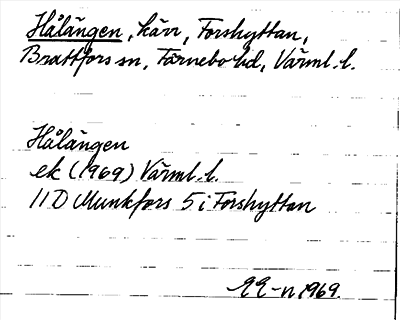 Hålängen, kärr, Forshyttan,
Brattfors sn, Färnebo hd, Värml. l.
Hålängen
ek (1969) Värml. l.
11D Munkfors 5 i Forshyttan
1969